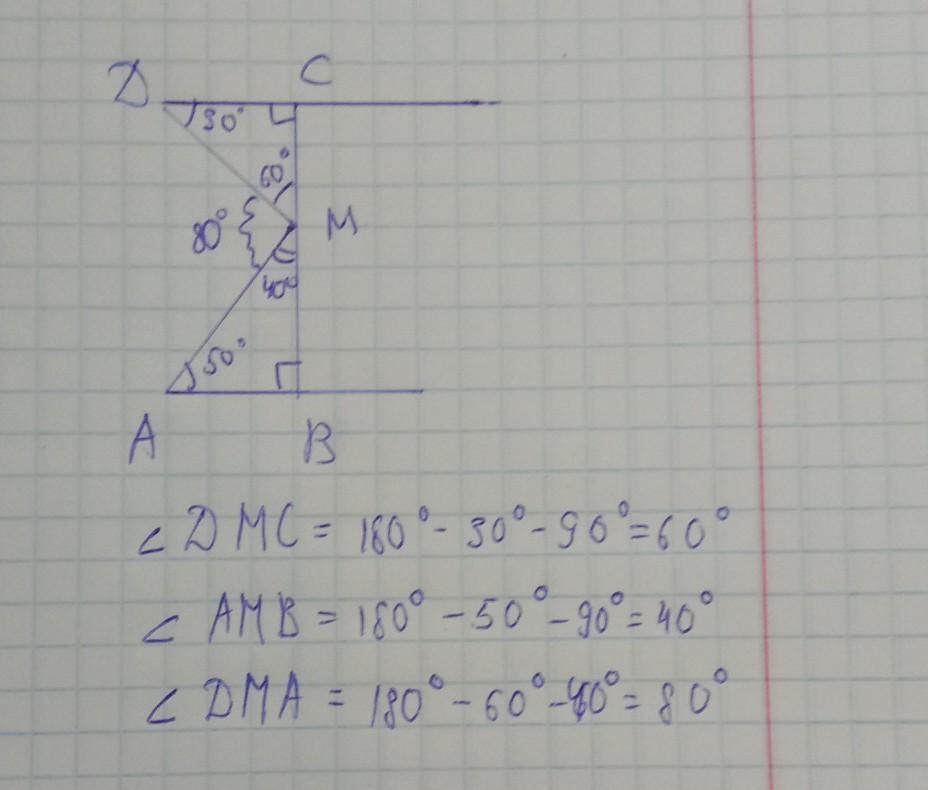 D C
30°
60°
80° M
40°
50°
A B
∠ DMC = 180° - 30° - 90° = 60°
∠ AMB = 180° - 50° - 90° = 40°
∠ DMA = 180° - 60° - 40° = 80°